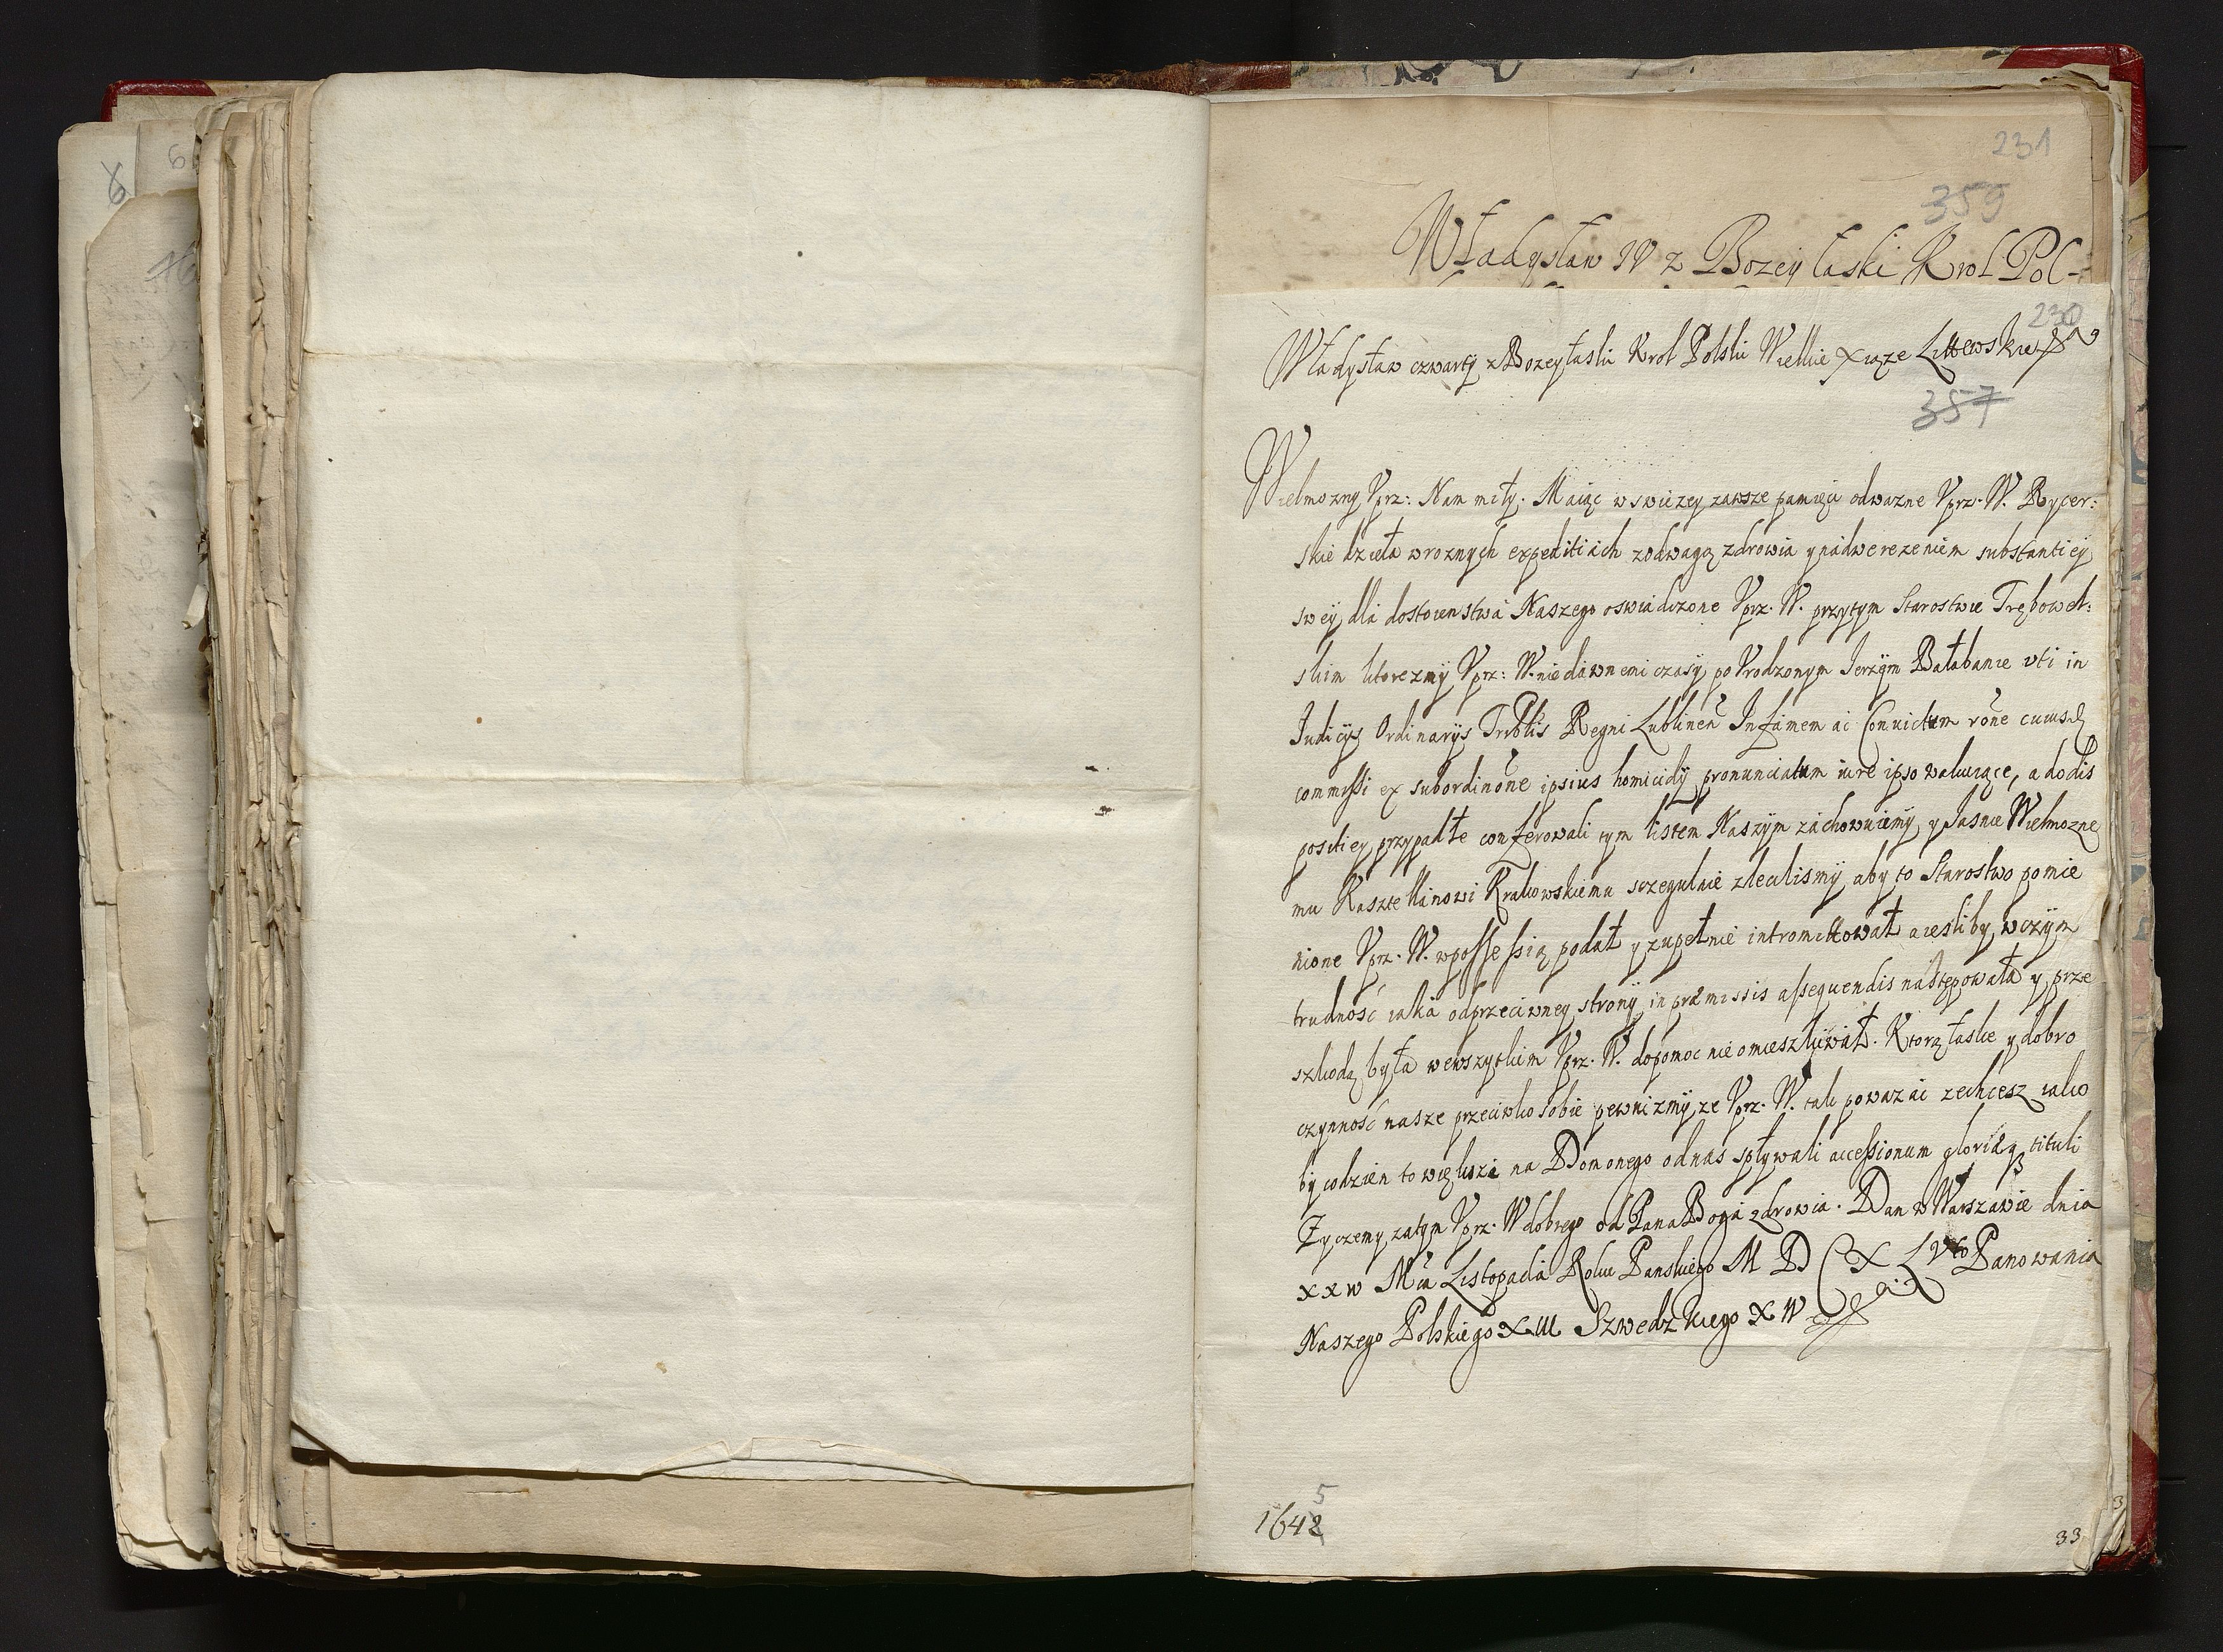 231
359
Władysław IV z Bozey łaski Krol Pol-
230
Władysław czwarty z Bozey łaski Krol Polski Wielkie Xiąże Littewskie
357
Wielmozny Vprz: Nam miły. Maiąc w swiezey zawsze pamięci odwazne Vprz. W. Rycer:
skie dzieła w roznych expeditiach z odwagą zdrowia y nadwerezeniem substantiey
swey, dla dostoienstwa Naszego oswiadczone Vprz. W. przy tym Starostwie Trębowel:
skim ktorezmy Vprz: W. niedawnemi czasy, po Vrodzonym Jerzym Bałabanie vti in
Judicijs Ordinarijs Triblis Regni Lublinen Infamem ac Convictum rone cuiusd
commissi ex subordinone ipsius homicidij pronunciatum iure ipso wakuiące, a do dis
positiey przypadłe conferowali tym listem Naszym zachowuiemy, y Jasnie Wielmozne
mu Kasztellanowi Krakowskiemu sczegulnie zlecilismy aby to Starostwo pomie
nione Vprz. W. w possessią podał y zupełnie intromittował a iesliby w czym
trudność iaka od przeciwney strony in præmissis assequendis następowała y prze
szkodą była we wszytkim Vprz. W. dopomoc nie omieszkiwał. Ktorą łaskę y dobro
czynność nasze przeciwko sobie pewnizmy, ze Vprz. W. tak powazać zechcesz iako
by codzien to większe na Dom onego od nas spływali accessionum gloriæq tituli
Zyczemy zatym Vprz. W dobrego od Pana Boga zdrowia. Dan w Warszawie dnia
xx w Mca Listopada Roku Panskiego M D C X L Vto Panowania
Naszego Polskiego XIII Szwedzkiego XIV
5
1642
33